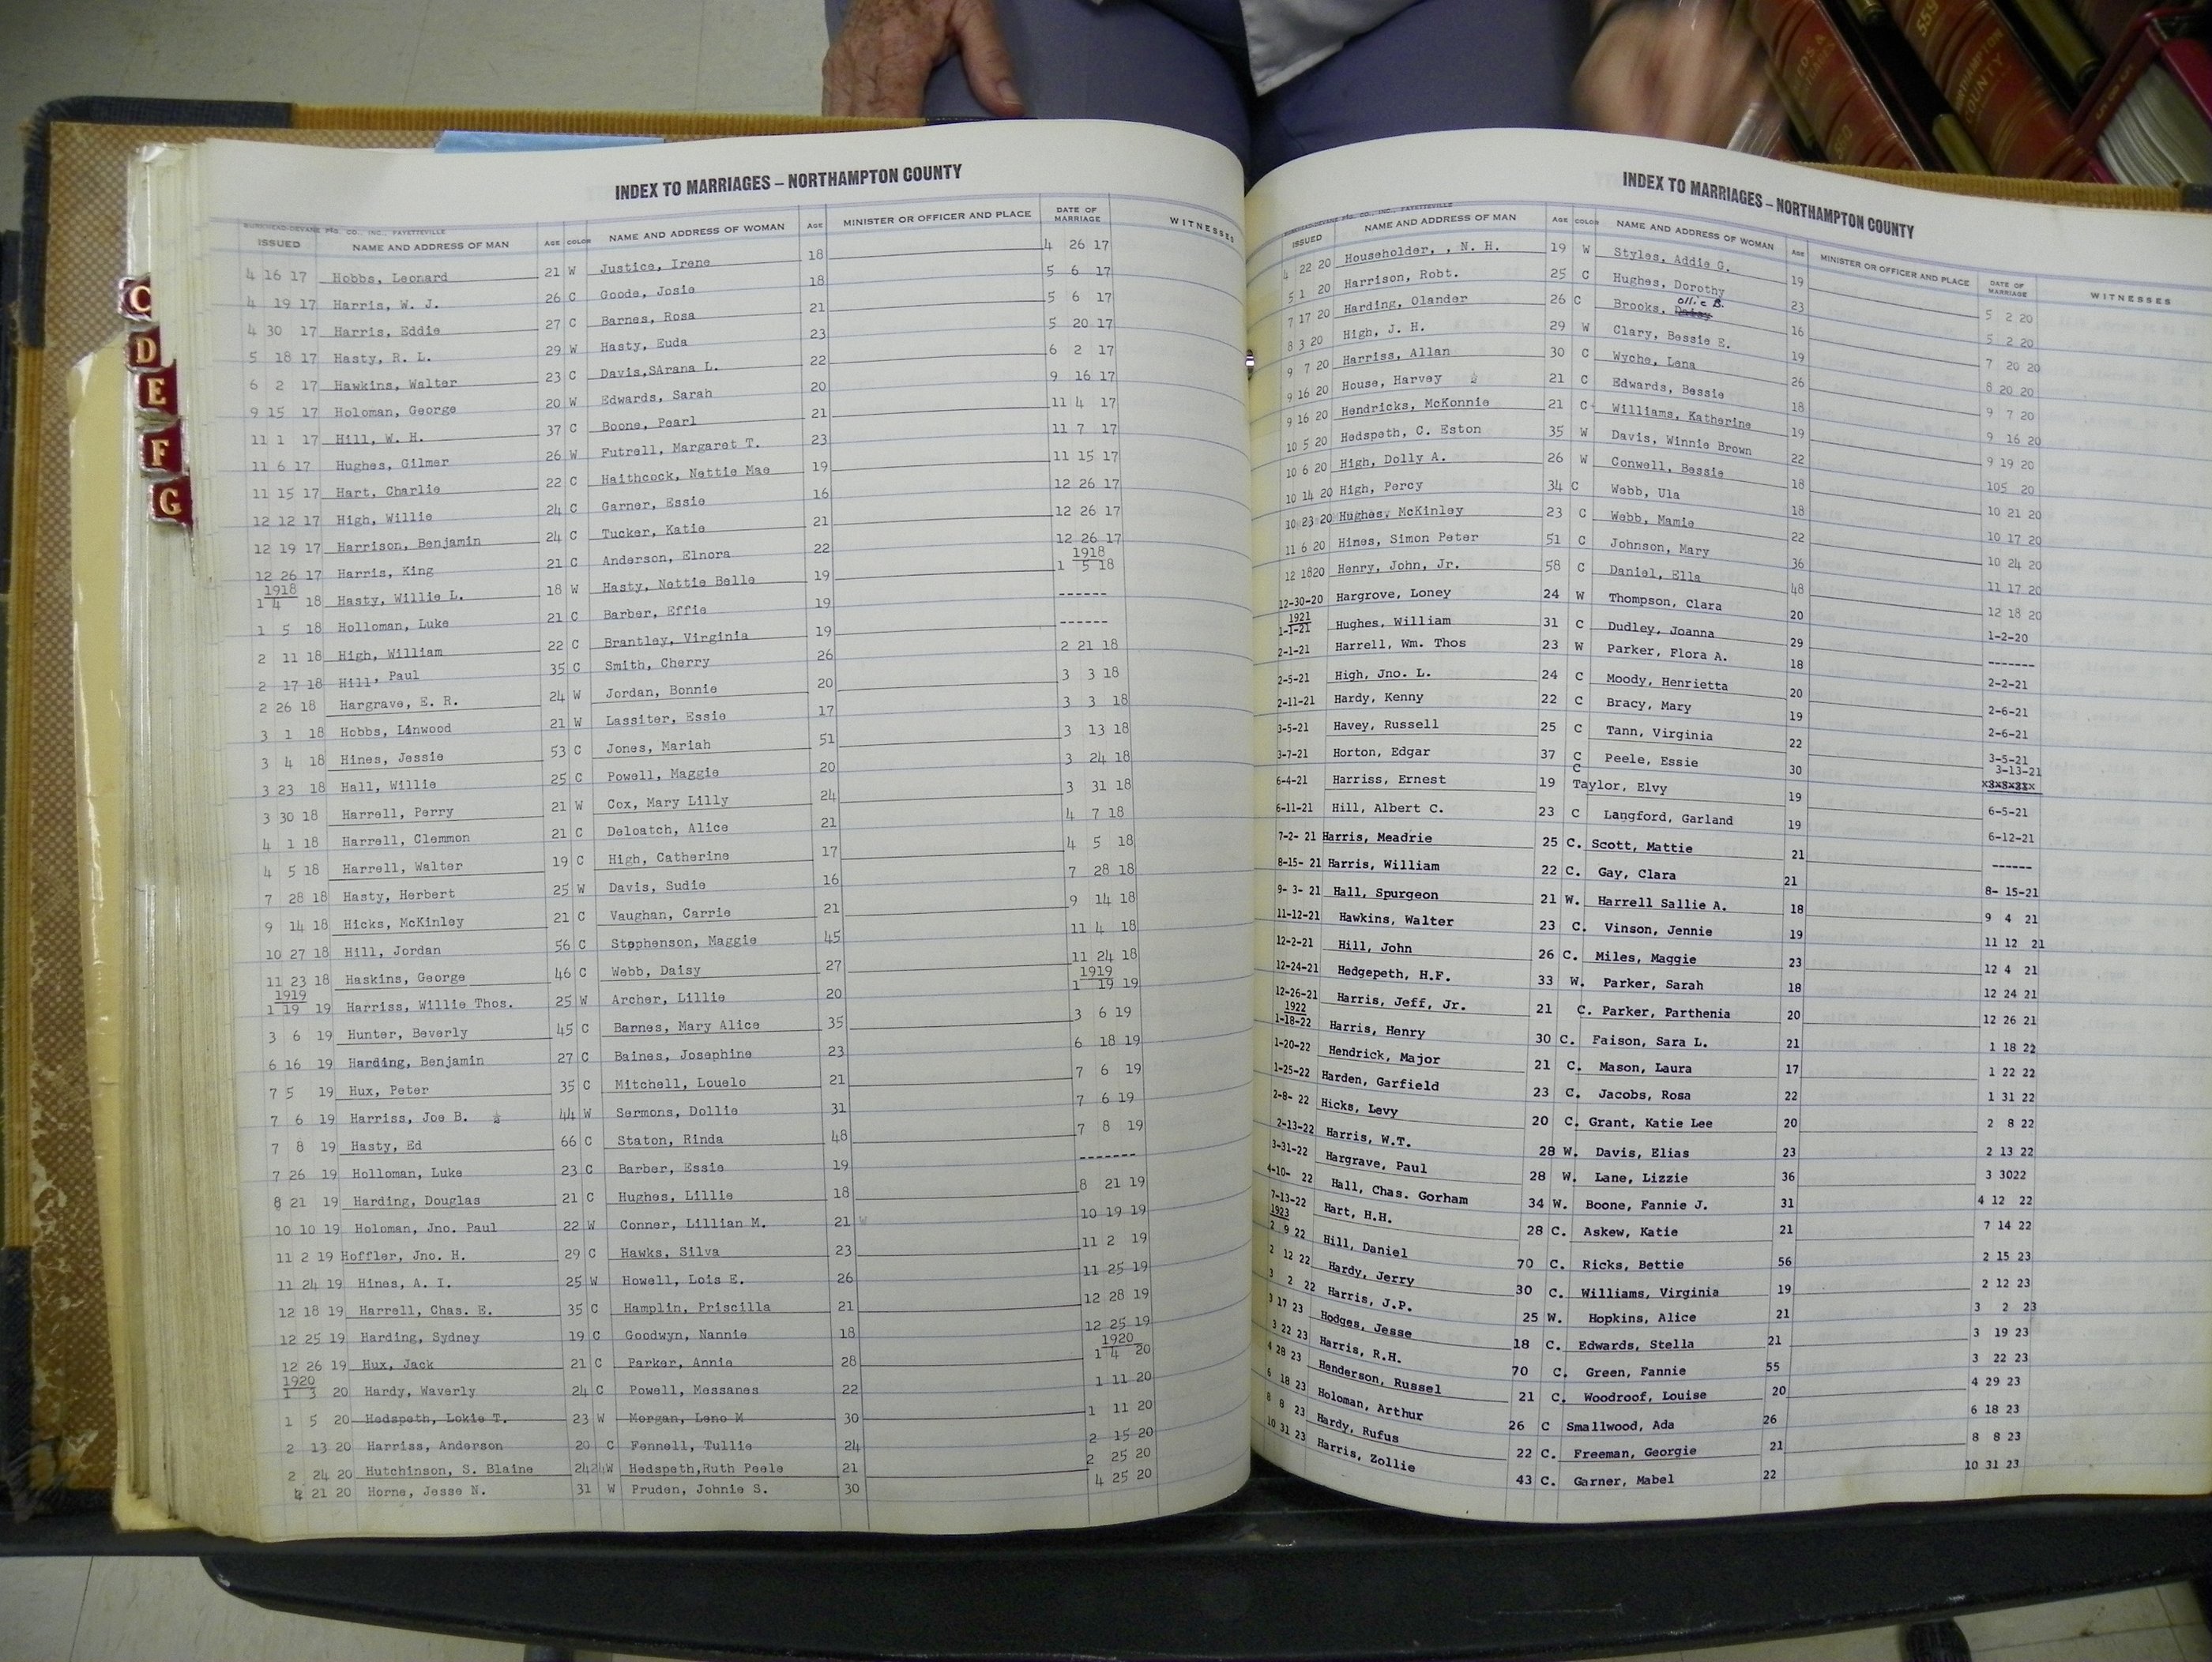 INDEX TO MARRIAGES – NORTHAMPTON COUNTY
BURKHEAD-DEVANE PTG. CO., INC., FAYETTEVILLE
ISSUED NAME AND ADDRESS OF MAN AGE COLOR NAME AND ADDRESS OF WOMAN AGE MINISTER OR OFFICER AND PLACE DATE OF MARRIAGE WITNESSES
4 16 17 Hobbs, Leonard 21 W Justice, Irene 18 4 26 17
4 19 17 Harris, W. J. 26 C Goode, Josie 18 5 6 17
4 30 17 Harris, Eddie 27 C Barnes, Rosa 21 5 6 17
5 18 17 Hasty, R. L. 29 W Hasty, Euda 23 5 20 17
6 2 17 Hawkins, Walter 23 C Davis,SArana L. 22 6 2 17
9 15 17 Holoman, George 20 W Edwards, Sarah 20 9 16 17
11 1 17 Hill, W. H. 37 C Boone, Pearl 21 11 4 17
11 6 17 Hughes, Gilmer 26 W Futrell, Margaret T. 23 11 7 17
11 15 17 Hart, Charlie 22 C Haithcock, Nettie Mae 19 11 15 17
12 12 17 High, Willie 24 C Garner, Essie 16 12 26 17
12 19 17 Harrison, Benjamin 24 C Tucker, Katie 21 12 26 17
12 26 17 Harris, King 21 C Anderson, Elnora 22 12 26 17
1918 1918
1 4 18 Hasty, Willie L. 18 W Hasty, Nettie Belle 19 1 5 18
1 5 18 Holloman, Luke 21 C Barber, Effie 19 ------
2 11 18 High, William 22 C Brantley, Virginia 19 ------
2 17 18 Hill, Paul 35 C Smith, Cherry 26 2 21 18
2 26 18 Hargrave, E. R. 24 W Jordan, Bonnie 20 3 3 18
3 1 18 Hobbs, Linwood 21 W Lassiter, Essie 17 3 3 18
3 4 18 Hines, Jessie 53 C Jones, Mariah 51 3 13 18
3 23 18 Hall, Willie 25 C Powell, Maggie 20 3 24 18
3 30 18 Harrell, Perry 21 W Cox, Mary Lilly 24 3 31 18
4 1 18 Harrell, Clemmon 21 C Deloatch, Alice 21 4 7 18
4 5 18 Harrell, Walter 19 C High, Catherine 17 4 5 18
7 28 18 Hasty, Herbert 25 W Davis, Sudie 16 7 28 18
9 14 18 Hicks, McKinley 21 C Vaughan, Carrie 21 9 14 18
10 27 18 Hill, Jordan 56 C Stephenson, Maggie 45 11 4 18
11 23 18 Haskins, George 46 C Webb, Daisy 27 11 24 18
1919 1919
1 19 19 Harriss, Willie Thos. 25 W Archer, Lillie 20 1 19 19
3 6 19 Hunter, Beverly 45 C Barnes, Mary Alice 35 3 6 19
6 16 19 Harding, Benjamin 27 C Baines, Josephine 23 6 18 19
7 5 19 Hux, Peter 35 C Mitchell, Louelo 21 7 6 19
7 6 19 Harriss, Joe B. 44 W Sermons, Dollie 31 7 6 19
7 8 19 Hasty, Ed 66 C Staton, Rinda 48 7 8 19
7 26 19 Holloman, Luke 23 C Barber, Essie 19 -------
8 21 19 Harding, Douglas 21 C Hughes, Lillie 18 8 21 19
10 10 19 Holoman, Jno. Paul 22 W Conner, Lillian M. 21 10 19 19
11 2 19 Hoffler, Jno. H. 29 C Hawks, Silva 23 11 2 19
11 24 19 Hines, A. I. 25 W Howell, Lois E. 26 11 25 19
12 18 19 Harrell, Chas. E. 35 C Hamplin, Priscilla 21 12 28 19
12 25 19 Harding, Sydney 19 C Goodwyn, Nannie 18 12 25 19
1920
12 26 19 Hux, Jack 21 C Parker, Annie 28 1 4 20
1920
1 3 20 Hardy, Waverly 24 C Powell, Messanes 22 1 11 20
1 5 20 Hedspeth, Lokie T. 23 W Morgan, Leno M 30 1 11 20
2 13 20 Harriss, Anderson 20 C Fennell, Tullie 24 2 15 20
2 24 20 Hutchinson, S. Blaine 24 W Hedspeth,Ruth Peele 21 2 25 20
4 21 20 Horne, Jesse N. 31 W Pruden, Johnie S. 30 4 25 20
INDEX TO MARRIAGES – NORTHAMPTON COUNTY
BURKHEAD-DEVANE PTG. CO., INC., FAYETTEVILLE
ISSUED NAME AND ADDRESS OF MAN AGE COLOR NAME AND ADDRESS OF WOMAN Age MINISTER OR OFFICER AND PLACE DATE OF MARRIAGE WITNESSES
4 22 20 Householder, , N. H. 19 W Styles, Addie G. 19 5 2 20
5 1 20 Harrison, Robt. 25 C Hughes, Dorothy 23 5 2 20
7 17 20 Harding, Olander 26 C Brooks, Daisy Ollie B. 16 7 20 20
8 3 20 High, J. H. 29 W Clary, Bessie E. 19 8 20 20
9 7 20 Harriss, Allan 30 C Wyche, Lena 26 9 7 20
9 16 20 House, Harvey 21 C Edwards, Bessie 18 9 16 20
9 16 20 Hendricks, McKonnie 21 C Williams, Katherine 19 9 19 20
10 5 20 Hedspeth, C. Eston 35 W Davis, Winnie Brown 22 105 20
10 6 20 High, Dolly A. 26 W Conwell, Bessie 18 10 21 20
10 14 20 High, Percy 34 C Webb, Ula 18 10 17 20
10 23 20 Hughes, McKinley 23 C Webb, Mamie 22 10 24 20
11 6 20 Hines, Simon Peter 51 C Johnson, Mary 36 11 17 20
12 1820 Henry, John, Jr. 58 C Daniel, Ella 48 12 18 20
12-30-20 Hargrove, Loney 24 W Thompson, Clara 20 1-2-20
1921
1-1-21 Hughes, William 31 C Dudley, Joanna 29 -------
2-1-21 Harrell, Wm. Thos 23 W Parker, Flora A. 18 2-2-21
2-5-21 High, Jno. L. 24 C Moody, Henrietta 20 2-6-21
2-11-21 Hardy, Kenny 22 C Bracy, Mary 19 2-6-21
3-5-21 Havey, Russell 25 C Tann, Virginia 22 3-5-21
3-7-21 Horton, Edgar 37 C Peele, Essie 30 3-13-21
6-4-21 Harriss, Ernest 19 C Taylor, Elvy 19 6-5-21
6-11-21 Hill, Albert C. 23 C Langford, Garland 19 6-12-21
7-2- 21 Harris, Meadrie 25 C. Scott, Mattie 21 ------
8-15- 21 Harris, William 22 C. Gay, Clara 21 8- 15-21
9- 3- 21 Hall, Spurgeon 21 W. Harrell Sallie A. 18 9 4 21
11-12-21 Hawkins, Walter 23 C. Vinson, Jennie 19 11 12 21
12-2-21 Hill, John 26 C. Miles, Maggie 23 12 4 21
12-24-21 Hedgepeth, H.F. 33 W. Parker, Sarah 18 12 24 21
12-26-21 Harris, Jeff, Jr. 21 C. Parker, Parthenia 20 12 26 21
1922
1-18-22 Harris, Henry 30 C. Faison, Sara L. 21 1 18 22
1-20-22 Hendrick, Major 21 C. Mason, Laura 17 1 22 22
1-25-22 Harden, Garfield 23 C. Jacobs, Rosa 22 1 31 22
2-8- 22 Hicks, Levy 20 C. Grant, Katie Lee 20 2 8 22
2-13-22 Harris, W.T. 28 W. Davis, Elias 23 2 13 22
3-31-22 Hargrave, Paul 28 W. Lane, Lizzie 36 3 3022
4-10- 22 Hall, Chas. Gorham 34 W. Boone, Fannie J. 31 4 12 22
7-13-22 Hart, H.H. 28 C. Askew, Katie 21 7 14 22
1923
2 9 22 Hill, Daniel 70 C. Ricks, Bettie 56 2 15 23
2 12 22 Hardy, Jerry 30 C. Williams, Virginia 19 2 12 23
3 2 22 Harris, J.P. 25 W. Hopkins, Alice 21 3 2 23
3 17 23 Hodges, Jesse 18 C. Edwards, Stella 21 3 19 23
3 22 23 Harris, R.H. 70 C. Green, Fannie 55 3 22 23
4 28 23 Henderson, Russel 21 C. Woodroof, Louise 20 4 29 23
6 18 23 Holoman, Arthur 26 C Smallwood, Ada 26 6 18 23
8 8 23 Hardy, Rufus 22 C. Freeman, Georgie 21 8 8 23
10 31 23 Harris, Zollie 43 C. Garner, Mabel 22 10 31 23
C
D
E
F
G
559
NORTHAMPTON COUNTY